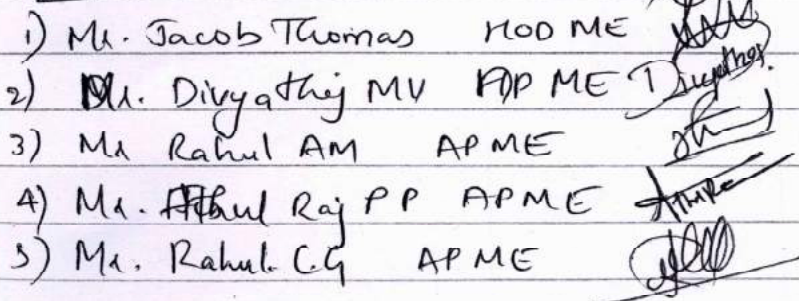 1) Mr. Jacob Thomas HOD ME
2) Mr. Divyathej MV AP ME Divyathej.
3) Mr Rahul AM AP ME
4) Mr. Athul Raj P P AP ME
5) Mr. Rahul. C.G AP ME